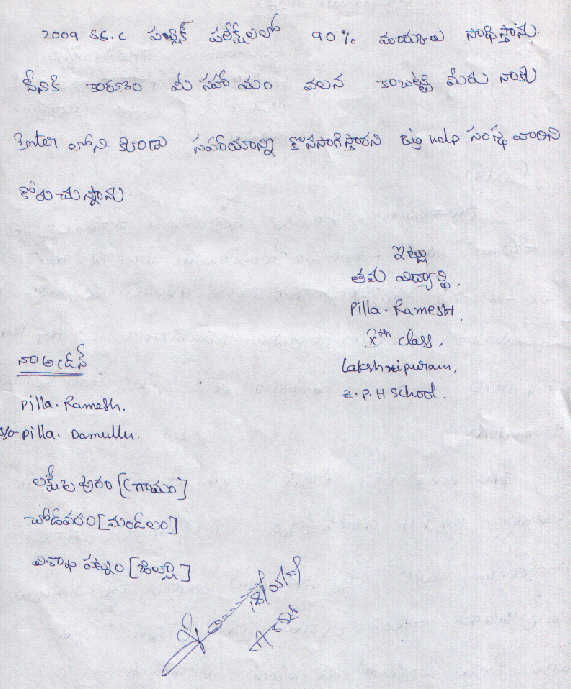 2009 SS.C పబ్లిక్ పరీక్షలలో 90% మార్కులు సాధిస్తాను.
దీనికి కారణం మీ సహాయం వలన మీరు నాకు
Enter లోని కుండు సహాయాన్ని కొనసాగిస్తారని Big Help సంస్థ వారిని
కోరుచున్నాను
ఇట్లు
తమ విద్యార్థి.
Pilla. Ramesh.
Xth class.
Lakshmipuram.
Z.P.H School.
నా అడ్రస్
Pilla. Ramesh.
S/o Pilla. Damullu.
లక్ష్మీపురం [గ్రామం]
చోడవరం [మండలం]
విశాఖ పట్నం [జిల్లా]